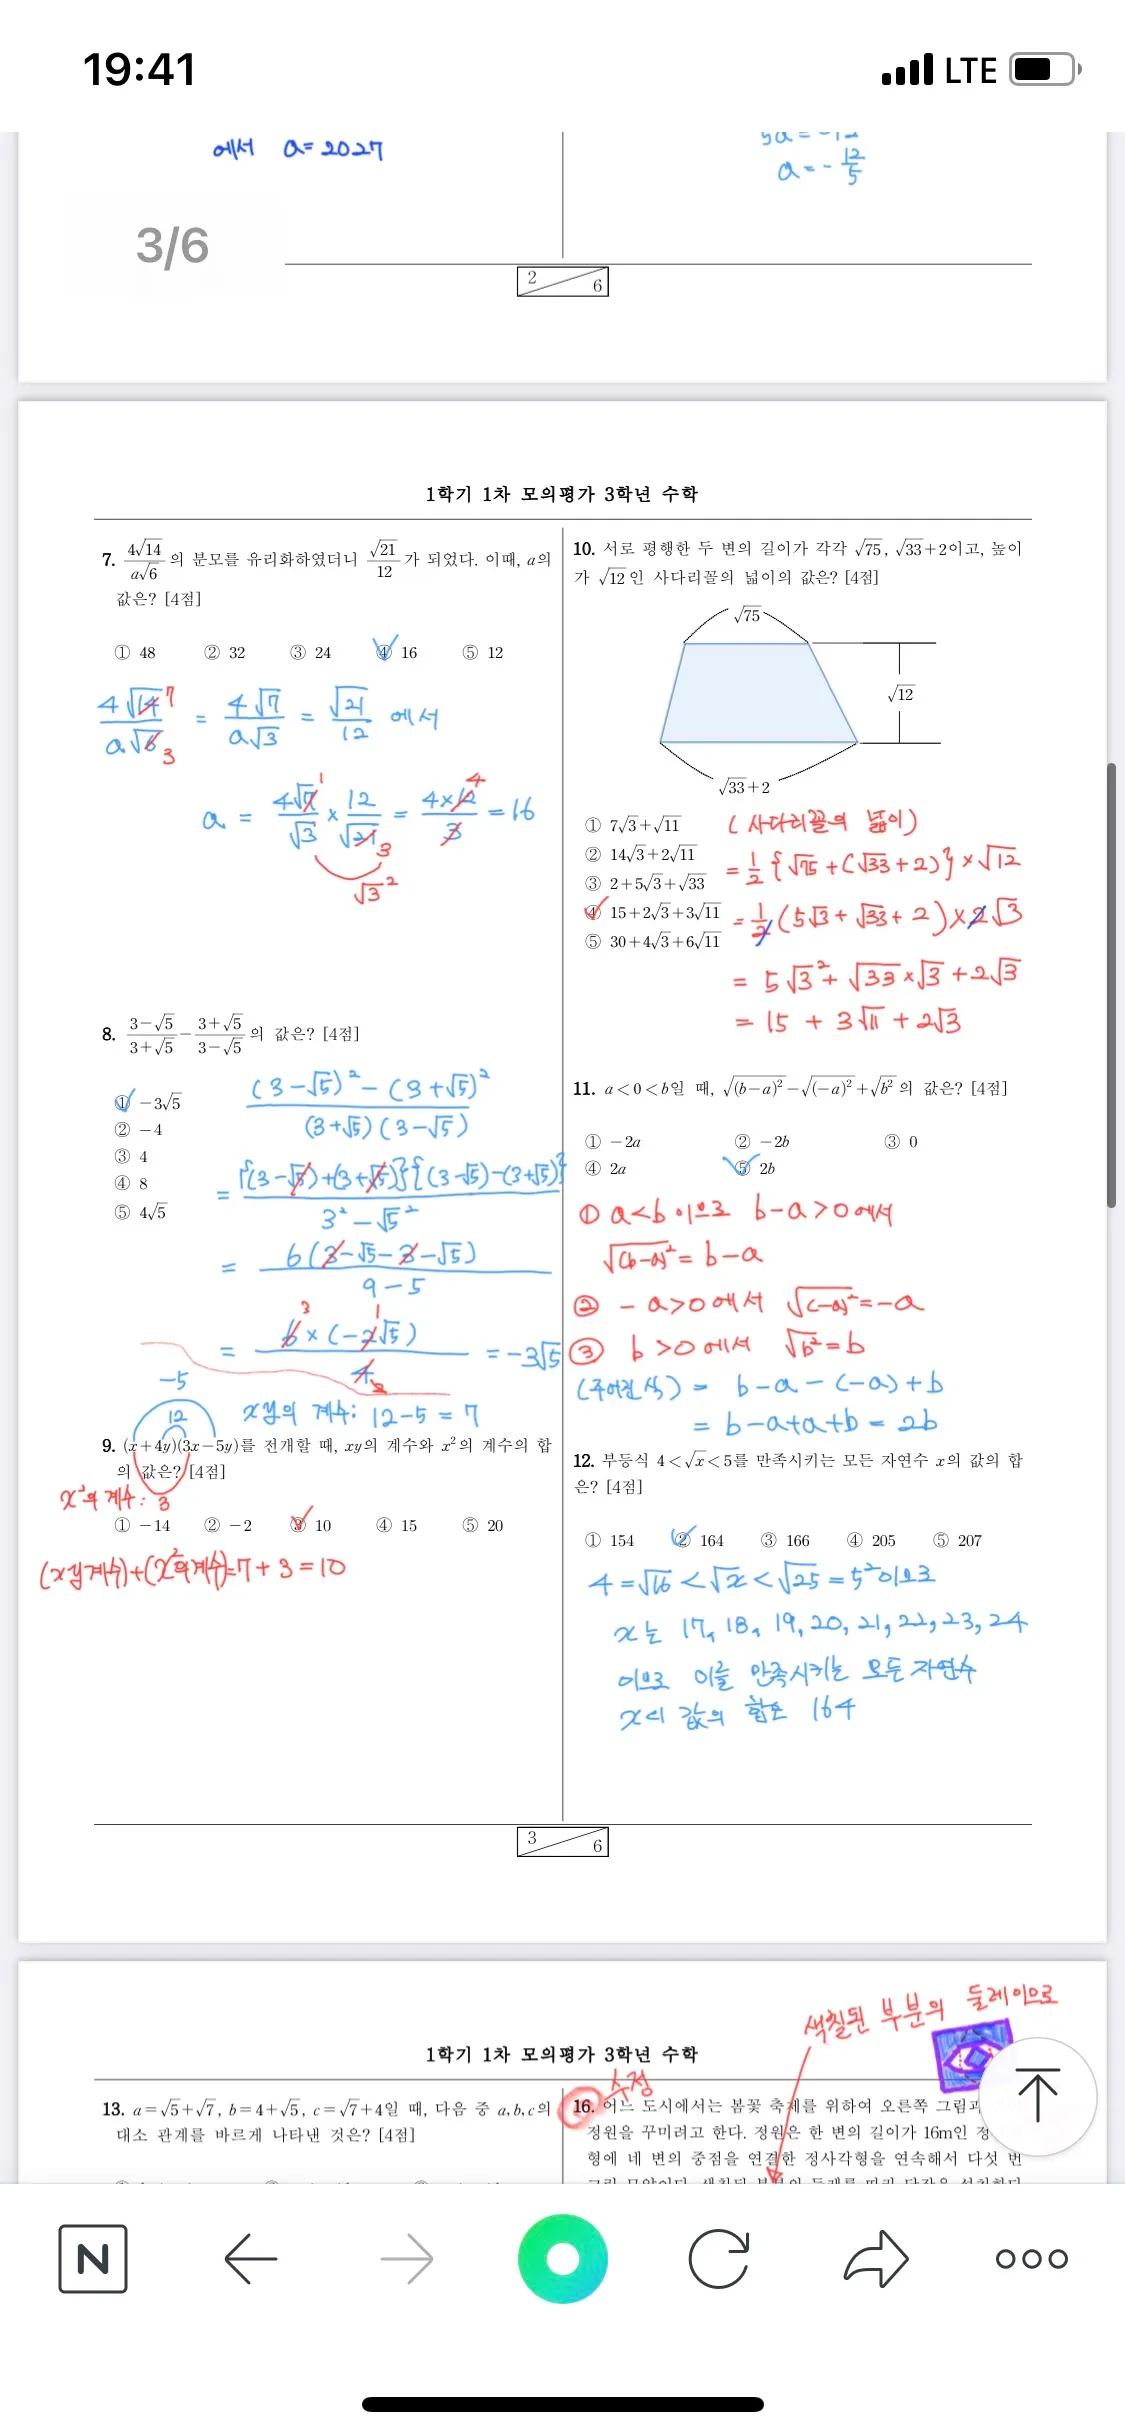 19:41
LTE
에서 a = 2027
a = - 12/5
3/6
2 6
1학기 1차 모의평가 3학년 수학
7. 4√14/a√6 의 분모를 유리화하였더니 √21/12 가 되었다. 이때, a의
값은? [4점]
① 48 ② 32 ③ 24 ④ 16 ⑤ 12
4√14/a√6 7 3 = 4√7/a√3 = √21/12 에서
a = 4√7/√3 × 12/√21 = 4×12/3 = 16
√3²
8. 3-√5/3+√5 - 3+√5/3-√5 의 값은? [4점]
① -3√5
② -4
③ 4
④ 8
⑤ 4√5
(3-√5)² - (3+√5)² / (3+√5)(3-√5)
= {(3-√5)+(3+√5)}{(3-√5)-(3+√5)} / 3²-√5²
= 6(3-√5-3-√5) / 9-5
= 6×(-2√5) / 4 = -3√5
-5
12
xy의 계수: 12-5 = 7
9. (x+4y)(3x-5y)를 전개할 때, xy의 계수와 x²의 계수의 합
의 값은? [4점]
x²의 계수: 3
① -14 ② -2 ③ 10 ④ 15 ⑤ 20
(xy계수)+(x²의계수)=7+3=10
10. 서로 평행한 두 변의 길이가 각각 √75, √33+2이고, 높이
가 √12인 사다리꼴의 넓이의 값은? [4점]
√75
√12
√33+2
① 7√3+√11
② 14√3+2√11
③ 2+5√3+√33
④ 15+2√3+3√11
⑤ 30+4√3+6√11
(사다리꼴의 넓이)
= 1/2 {√75+(√33+2)}×√12
= 1/2 (5√3+√33+2)×2√3
= 5√3²+√33×√3+2√3
= 15 + 3√11 + 2√3
11. a<0<b일 때, √(b-a)²-√(-a)²+√b²의 값은? [4점]
① -2a ② -2b ③ 0
④ 2a ⑤ 2b
① a<b 이므로 b-a>0에서
√(b-a)² = b-a
② -a>0에서 √(-a)²=-a
③ b>0에서 √b²=b
(주어진 식) = b-a-(-a)+b
= b-a+a+b = 2b
12. 부등식 4<√x<5를 만족시키는 모든 자연수 x의 값의 합
은? [4점]
① 154 ② 164 ③ 166 ④ 205 ⑤ 207
4=√16<√x<√25=5²이므로
x는 17, 18, 19, 20, 21, 22, 23, 24
이므로 이를 만족시키는 모든 자연수
x의 값의 합은 164
3 6
색칠된 부분의 둘레이므로
1학기 1차 모의평가 3학년 수학
수정
13. a=√5+√7, b=4+√5, c=√7+4일 때, 다음 중 a,b,c의
대소 관계를 바르게 나타낸 것은? [4점]
16. 어느 도시에서는 봄꽃 축제를 위하여 오른쪽 그림과
정원을 꾸미려고 한다. 정원은 한 변의 길이가 16m인 정
형에 네 변의 중점을 연결한 정사각형을 연속해서 다섯 번
N